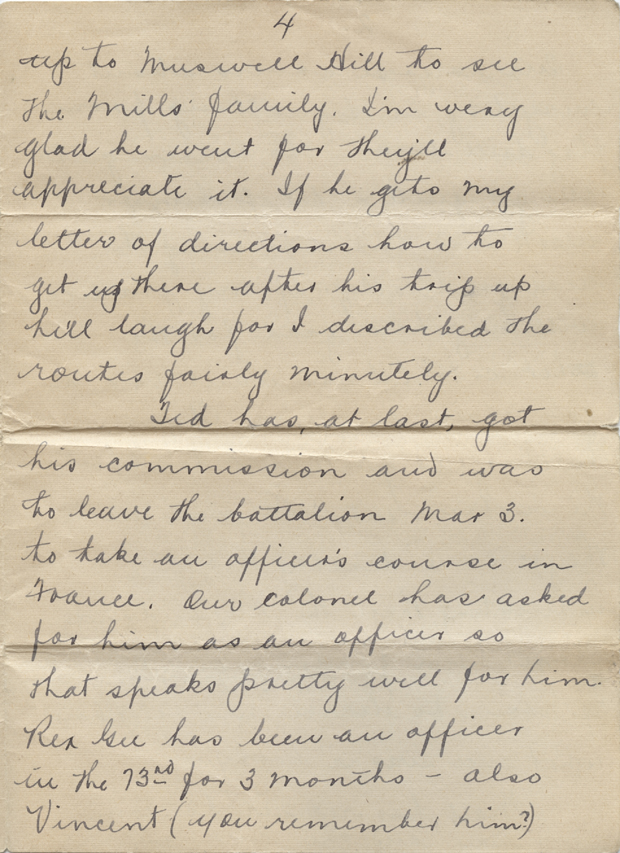 4
up to Muswell Hill to see
the Mills' family. I'm very
glad he went for they'll
appreciate it. If he gets my
letter of directions how to
get there after his trip up
he'll laugh for I described the
routes fairly minutely.
Ted has, at last, got
his commission and was
to leave the battalion Mar 3.
to take an officer's course in
France. Our colonel has asked
for him as an officer so
that speaks pretty well for him.
Rex Gee has been an officer
in the 73nd for 3 months - also
Vincent (you remember him?)